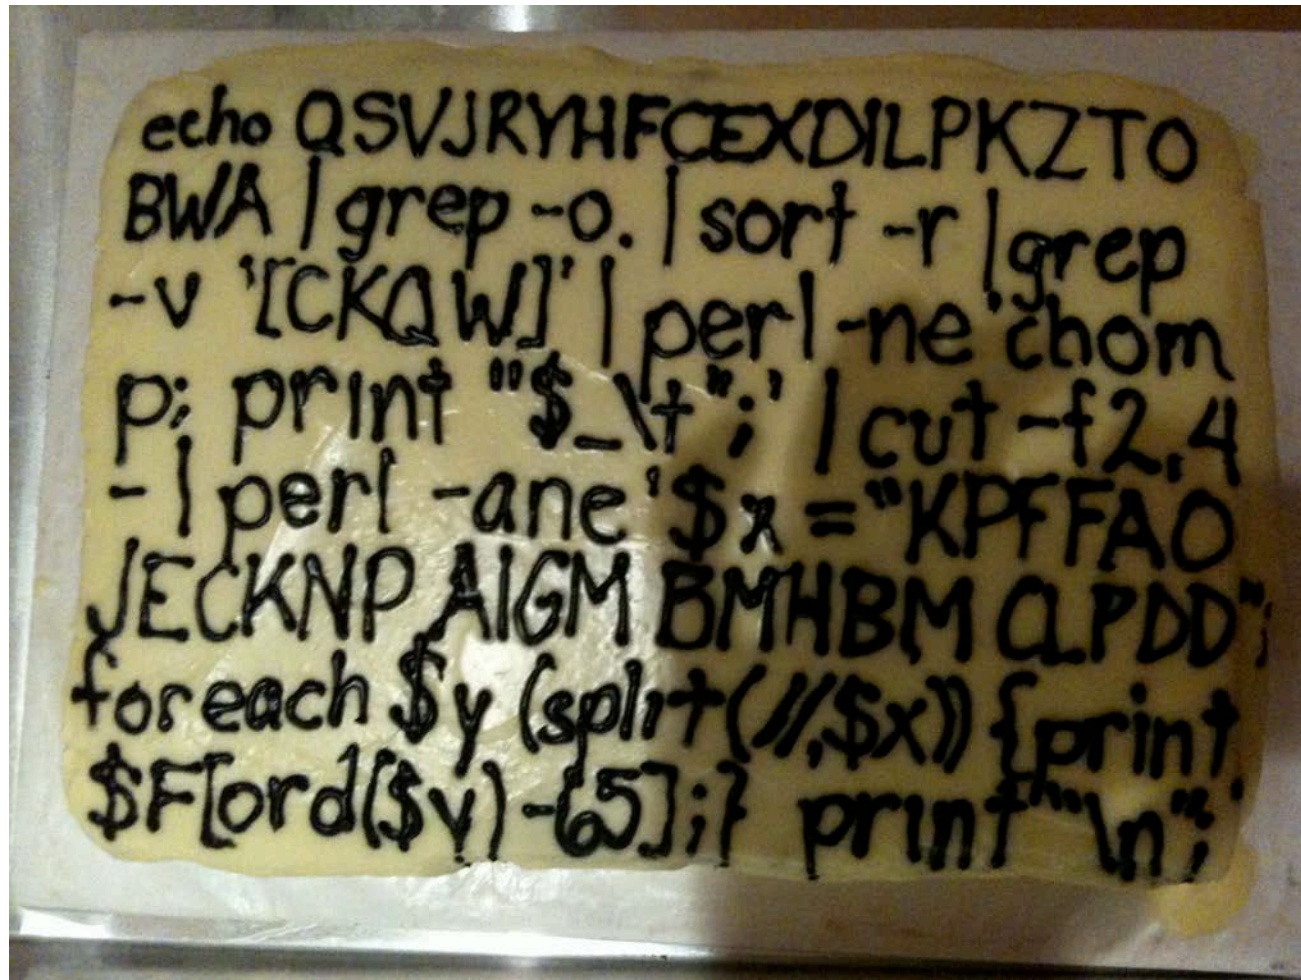 echo QSVJRYHFCEXDILPKZTO
BWA | grep -o . | sort -r | grep
-v '[CKQW]' | perl -ne 'chom
p; print "$_\t";' | cut -f2,4
- | perl -ane '$x = "KPFFAO
JECKNP AIGM BMHBM CLPDD";
foreach $y (split(//,$x)) {print
$F[ord($y)-65];} print "\n";'